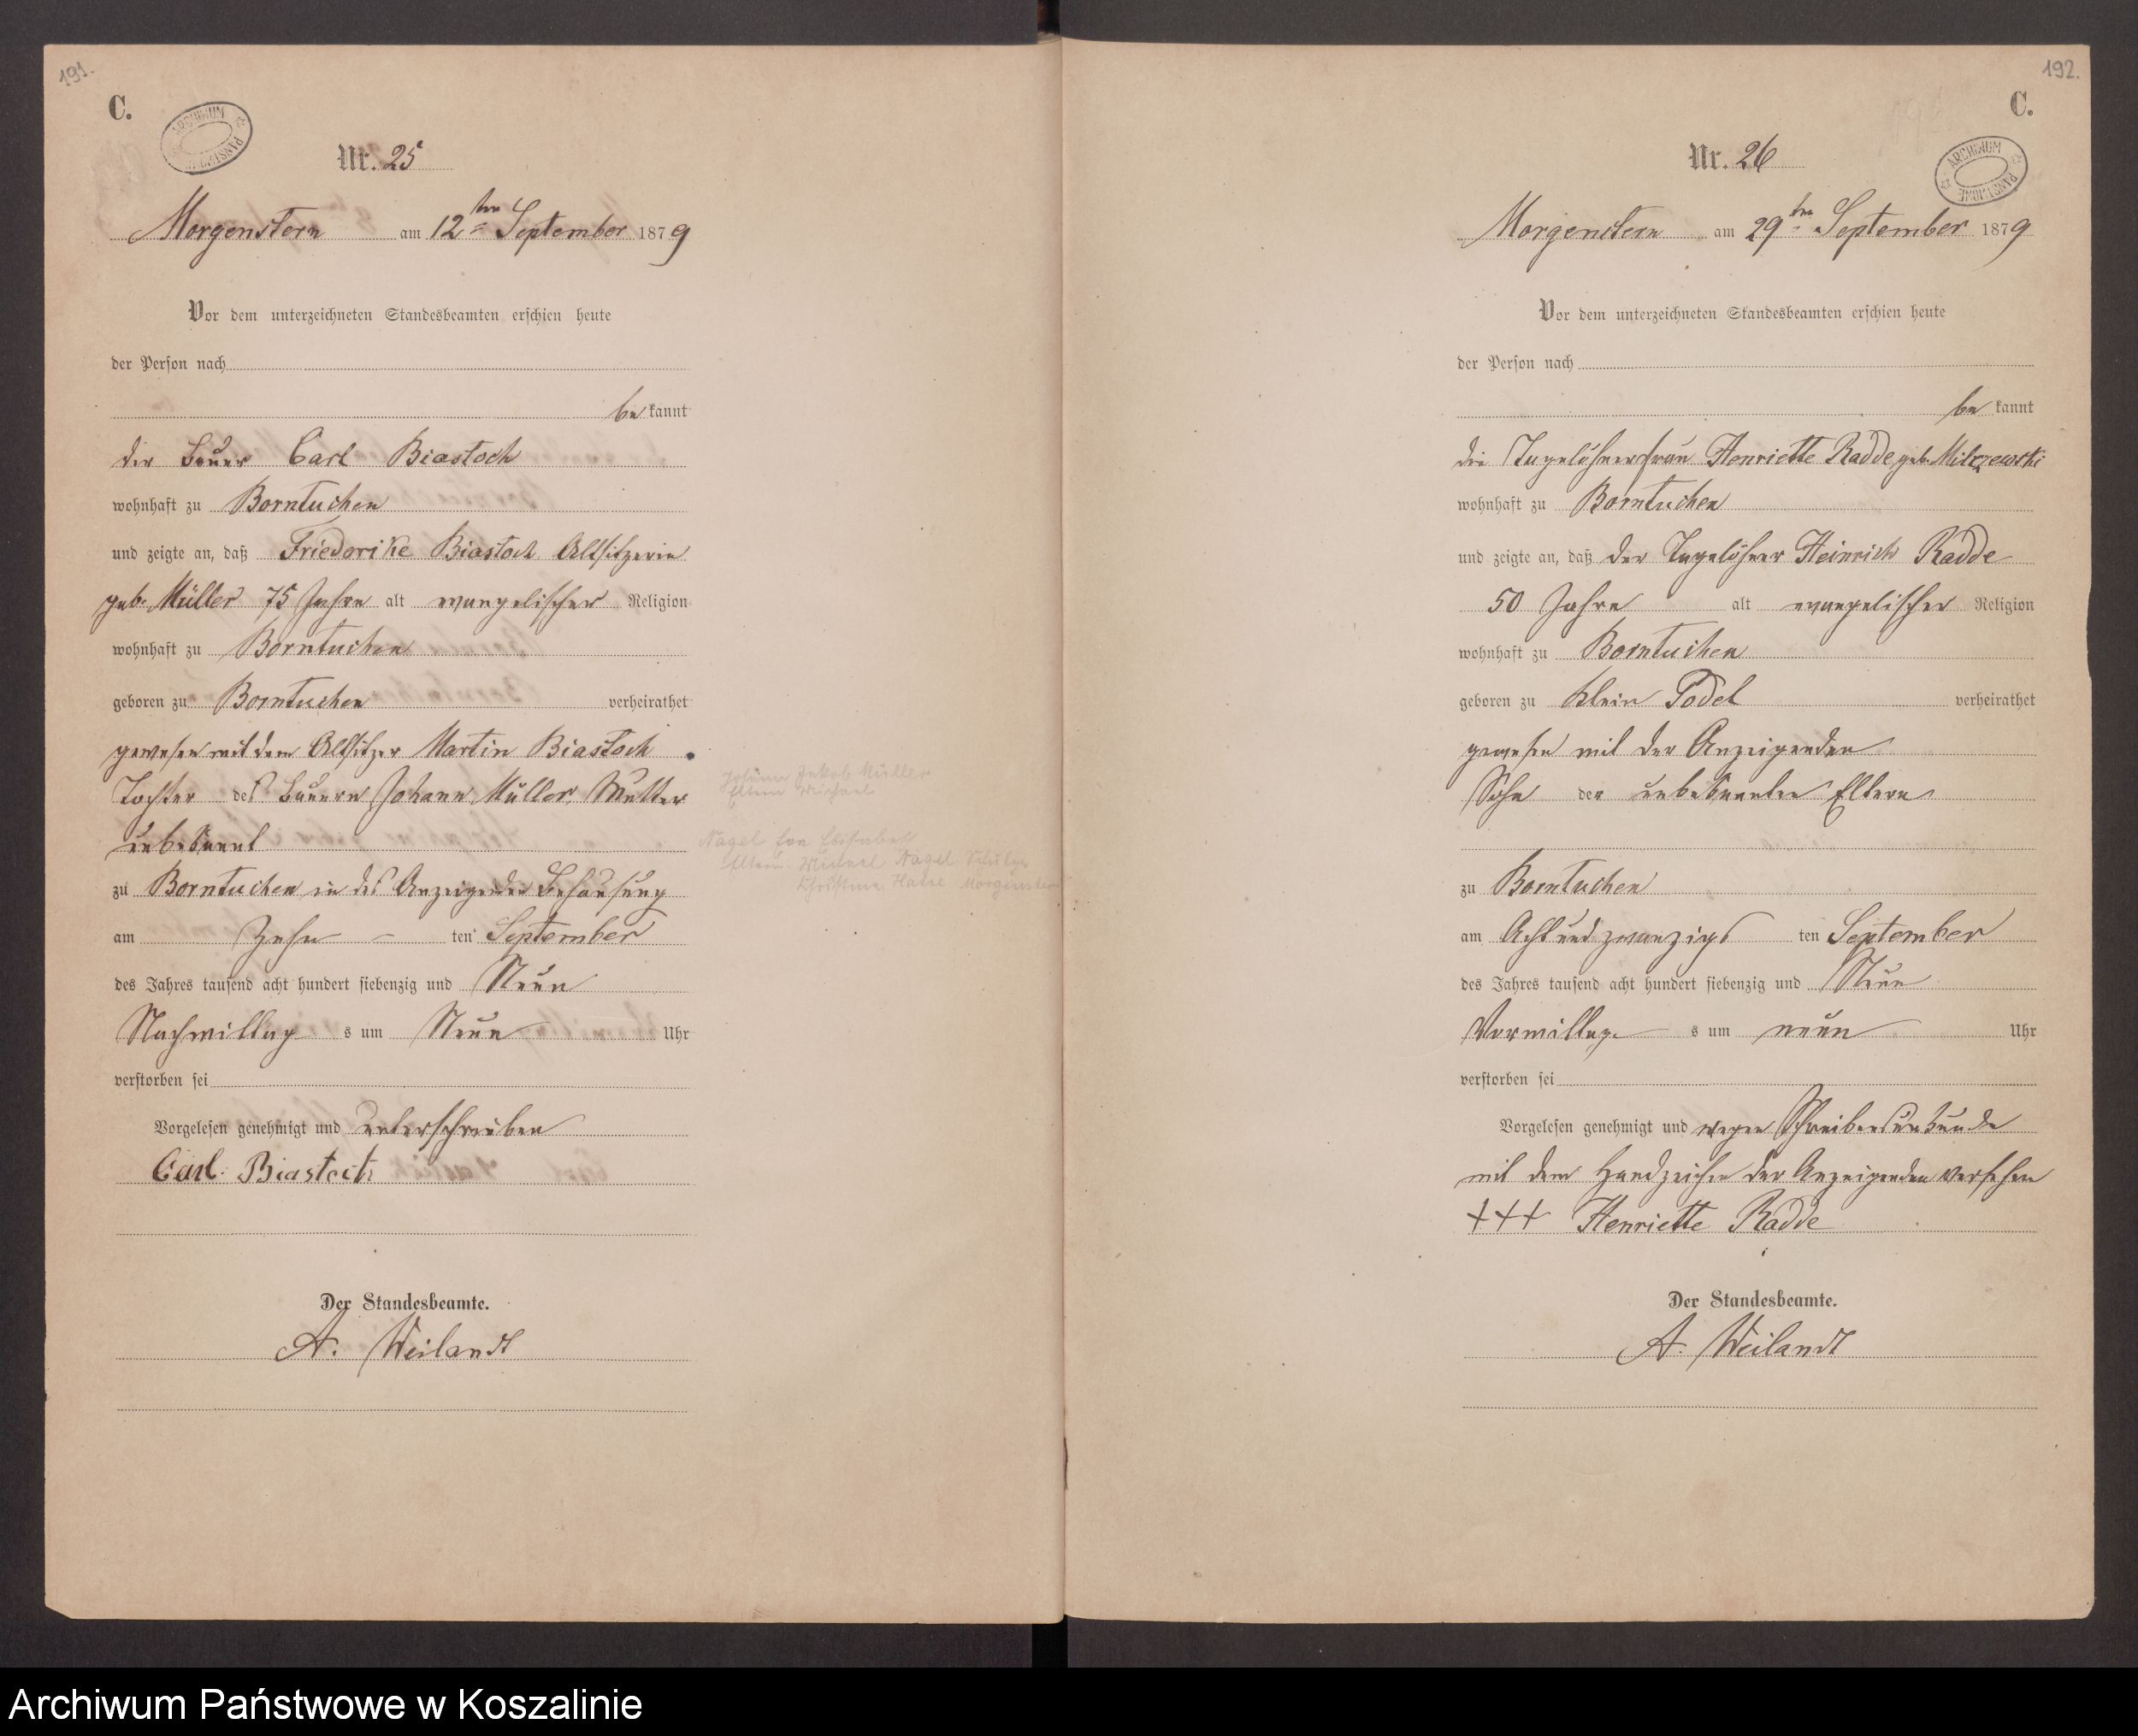 191.
C.
ARCHIWUM PAŃSTWOWE
Nr. 25
Morgenstern am 12ten September 1879
Vor dem unterzeichneten Standesbeamten erschien heute
der Person nach
be kannt
der Bauer Carl Biastoch
wohnhaft zu Borntuchen
und zeigte an, daß Friedorike Biastoch Altsitzerin
geb. Müller 75 Jahre alt evangelischer Religion
wohnhaft zu Borntuchen
geboren zu Borntuchen verheirathet
gewesen mit dem Altsitzer Martin Biastoch
Tochter des Bauern Johann Müller, Mutter
unbekannt
zu Borntuchen in des Anzeigenden Behausung
am Zehn ten September
des Jahres tausend acht hundert siebenzig und Neun
Nachmittag s um Neun Uhr
verstorben sei
Vorgelesen genehmigt und unterschrieben
Carl Biastoch
Der Standesbeamte.
A. Weilandt
Johann Jakob Müller
Eltern Michael
Nagel Eva Elisabet
Eltern Michael Nagel Schulze
Christine Morgenstern
192.
C.
ARCHIWUM PAŃSTWOWE
Nr. 26
Morgenstern am 29ten September 1879
Vor dem unterzeichneten Standesbeamten erschien heute
der Person nach
be kannt
die Tagelöhnerfrau Henriette Radde geb. Milczewski
wohnhaft zu Borntuchen
und zeigte an, daß der Tagelöhner Heinrich Radde
50 Jahre alt evangelischer Religion
wohnhaft zu Borntuchen
geboren zu Klein Podel verheirathet
gewesen mit der Anzeigenden
Sohn der unbekannten Eltern
zu Borntuchen
am Acht und zwanzigs ten September
des Jahres tausend acht hundert siebenzig und Neun
Vormittag s um neun Uhr
verstorben sei
Vorgelesen genehmigt und wegen Schreibensunkunde
mit dem Handzeichen der Anzeigenden versehen
+++ Henriette Radde
Der Standesbeamte.
A. Weilandt
Archiwum Państwowe w Koszalinie